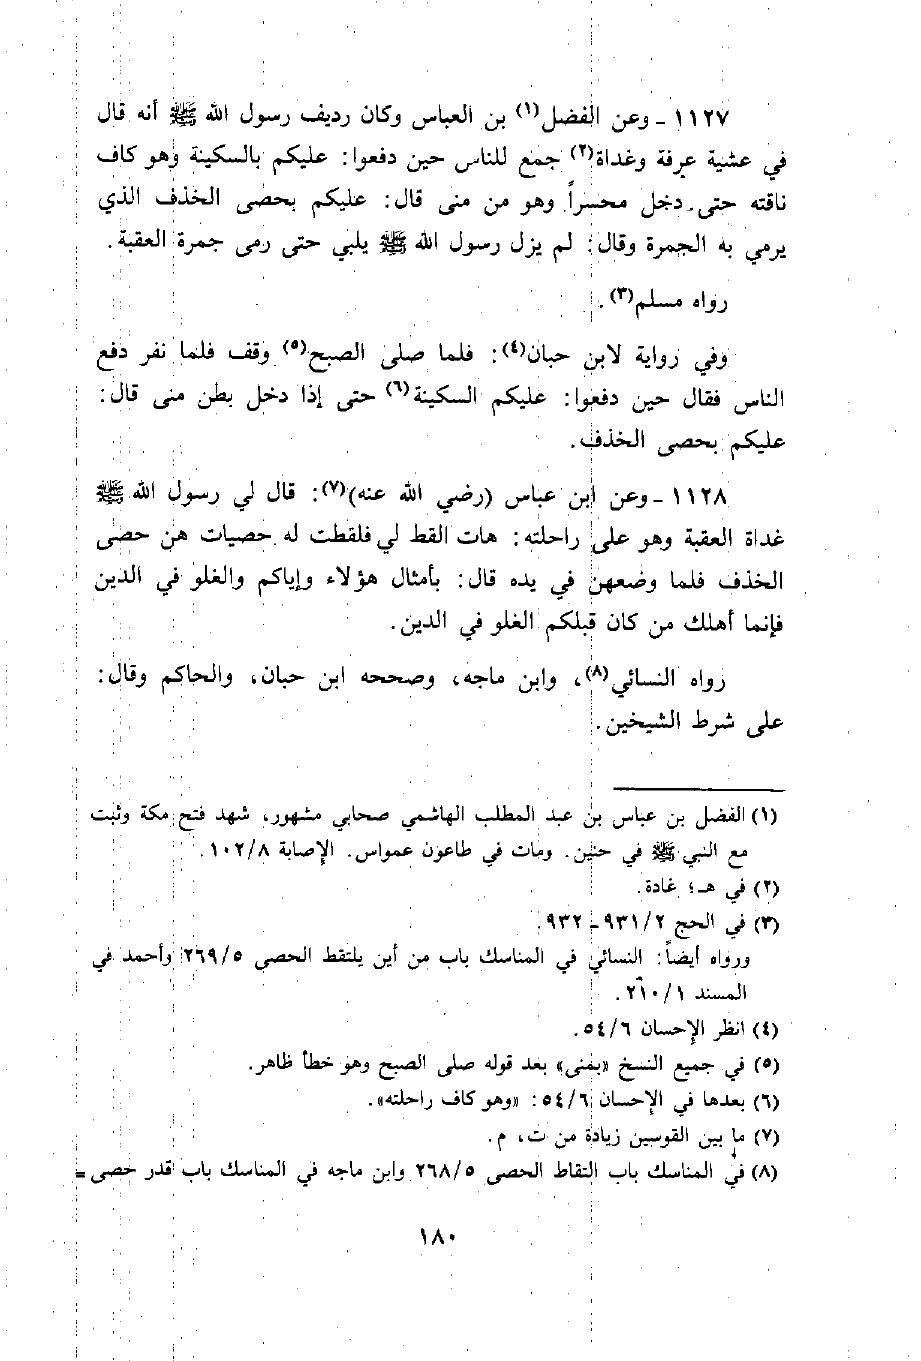 ١١٢٧ - وعن الفضل(١) بن العباس وكان رديف رسول الله ﷺ أنه قال
في عشية عرفة وغداة(٢) جمع للناس حين دفعوا: عليكم بالسكينة وهو كاف
ناقته حتى دخل محسراً وهو من منى قال: عليكم بحصى الخذف الذي
يرمي به الجمرة وقال: لم يزل رسول الله ﷺ يلبي حتى رمى جمرة العقبة.
رواه مسلم(٣).
وفي رواية لابن حبان(٤): فلما صلى الصبح(٥) وقف فلما نفر دفع
الناس فقال حين دفعوا: عليكم السكينة(٦) حتى إذا دخل بطن منى قال:
عليكم بحصى الخذف.
١١٢٨ - وعن ابن عباس (رضي الله عنه)(٧): قال لي رسول الله ﷺ
غداة العقبة وهو على راحلته: هات القط لي فلقطت له حصيات هن حصى
الخذف فلما وضعهن في يده قال: بأمثال هؤلاء وإياكم والغلو في الدين
فإنما أهلك من كان قبلكم الغلو في الدين.
رواه النسائي(٨)، وابن ماجه، وصححه ابن حبان، والحاكم وقال:
على شرط الشيخين.
(١) الفضل بن عباس بن عبد المطلب الهاشمي صحابي مشهور، شهد فتح مكة وثبت
مع النبي ﷺ في حنين. ومات في طاعون عمواس. الإصابة ١٠٢/٨.
(٢) في هـ؛ غادة.
(٣) في الحج ٩٣١/٢ - ٩٣٢.
ورواه أيضاً: النسائي في المناسك باب من أين يلتقط الحصى ٢٦٩/٥ وأحمد في
المسند ٢١٠/١.
(٤) انظر الإحسان ٥٤/٦.
(٥) في جميع النسخ «بمنى» بعد قوله صلى الصبح وهو خطأ ظاهر.
(٦) بعدها في الإحسان ٥٤/٦: «وهو كاف راحلته».
(٧) ما بين القوسين زيادة من ت، م.
(٨) في المناسك باب التقاط الحصى ٢٦٨/٥ وابن ماجه في المناسك باب قدر حصى =
١٨٠